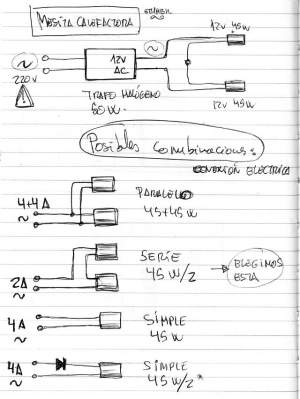 MESITA CALEFACTORA
12V 45W
~
~
12V
AC
220V
12V 45W
TRAFO HALÓGENO
60W.
Posibles combinaciones:
CONEXIÓN ELECTRICA
PARALELO
4+4A
45+45W
~
SERIE
45W/2
ELEGIMOS
ESTA
2A
~
4A
SIMPLE
45W
~
4A
SIMPLE
45W/2*
~